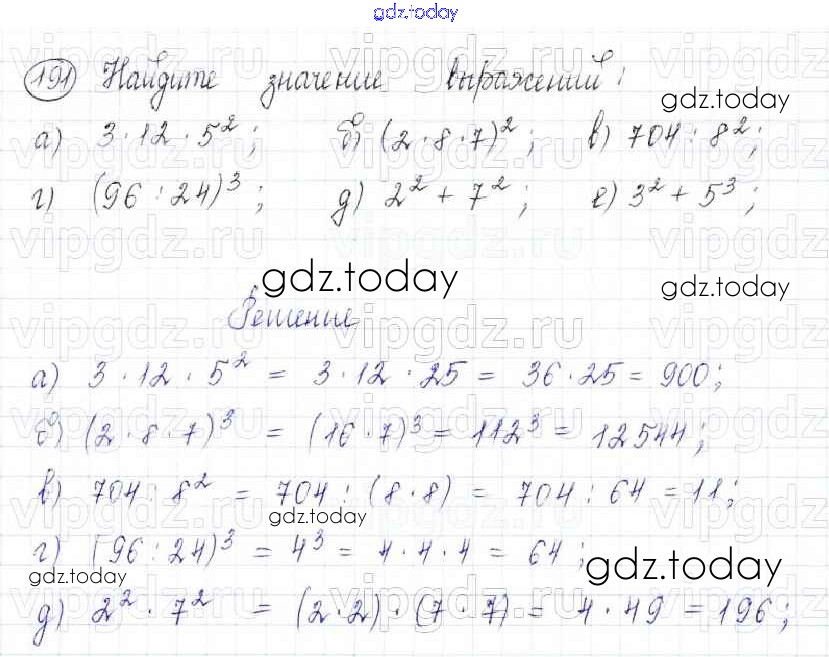 gdz.today
191 Найдите значение выражений:
gdz.today
а) 3 · 12 · 5²; б) (2 · 8 · 7)²; в) 704 : 8²;
г) (96 : 24)³; д) 2² + 7²; е) 3² + 5³;
vipgdz.ru vipgdz.ru
gdz.today gdz.today
Решение
vipgdz.ru vipgdz.ru
а) 3 · 12 · 5² = 3 · 12 · 25 = 36 · 25 = 900;
б) (2 · 8 · 7)³ = (16 · 7)³ = 112³ = 12544;
в) 704 : 8² = 704 : (8 · 8) = 704 : 64 = 11;
gdz.today
г) (96 : 24)³ = 4³ = 4 · 4 · 4 = 64;
gdz.today gdz.today
д) 2² · 7² = (2 · 2) · (7 · 7) = 4 · 49 = 196;